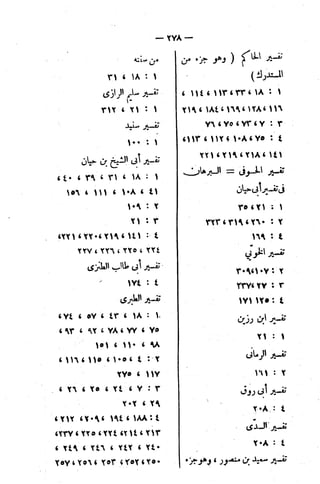 — ٢٧٨ —
تفسير الحاكم ( وهو جزء من
المستدرك )
١ : ١٨ ، ٣٣ ، ١١٣ ، ١١٤ ،
١١٦ ، ١٢٨ ، ١٦٩ ، ١٨٤ ، ٢١٩
٣ : ٧ ، ٧٣ ، ٧٥ ، ٧٦
٤ : ٧٥ ، ١٠٨ ، ١١٢ ، ١١٣ ،
١٤١ ، ٢١٨ ، ٢١٩ ، ٢٢١
تفسير الحوفى = البرهان
فى تفسير أبى حيان
١ : ٢١ ، ٣٥
٢ : ٢٦٠ ، ٣١٩ ، ٣٢٣
٤ : ١٦٩
تفسير الخويى
٢ : ١٠٧ ، ٣٠٩
٣ : ٢٧ ، ٣٣٧
٤ : ١٢٥ ، ١٧١
تفسير ابن رزين
١ : ٢١
تفسير الرمانى
٢ : ١٦١
تفسير أبى روق
٤ : ٢٠٨
تفسير السدّى
٤ : ٢٠٨
تفسير سعيد بن منصور ، وهو جزء
من سننه
١ : ١٨ ، ٣١
تفسير سليم الرازى
١ : ٢١ ، ٣١٢
تفسير سنيد
١ : ١٠٠
تفسير أبى الشيخ بن حيان
١ : ١٨ ، ٣١ ، ٣٩ ، ٤٠ ،
٤١ ، ١٠٨ ، ١١١ ، ١٥٦
٢ : ١٠٩
٣ : ٢١
٤ : ١٤١ ، ٢١٩ ، ٢٢٠ ، ٢٢١ ،
٢٢٤ ، ٢٢٥ ، ٢٢٦ ، ٢٢٧
تفسير أبى طالب الطبرى
٤ : ١٧٤
تفسير الطبرى
١ : ١٨ ، ٤٣ ، ٥٧ ، ٧٤ ،
٧٥ ، ٧٧ ، ٧٨ ، ٩٢ ، ٩٣ ،
٩٨ ، ١١٠ ، ١٥١
٢ : ٤ ، ١٠٥ ، ١١٥ ، ١١٦ ،
١١٧ ، ٢٧٥
٣ : ٧ ، ٢٤ ، ٢٥ ، ٢٦ ،
٢٩ ، ٢٠٢
٤ : ١٨٨ ، ١٩٤ ، ٢٠٩ ، ٢١٢ ،
٢١٣ ، ٢١٤ ، ٢٢٤ ، ٢٢٥ ، ٢٣٧ ،
٢٤٠ ، ٢٤٢ ، ٢٤٦ ، ٢٤٩ ،
٢٥٠ ، ٢٥٢ ، ٢٥٣ ، ٢٥٦ ، ٢٥٧